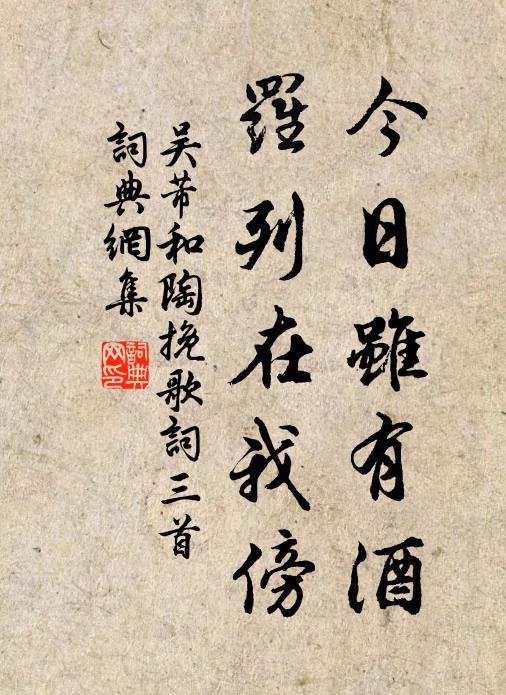 今日雖有酒
羅列在我傍
吴芾和陶挽歌詞三首
詞典網集
詞典网印